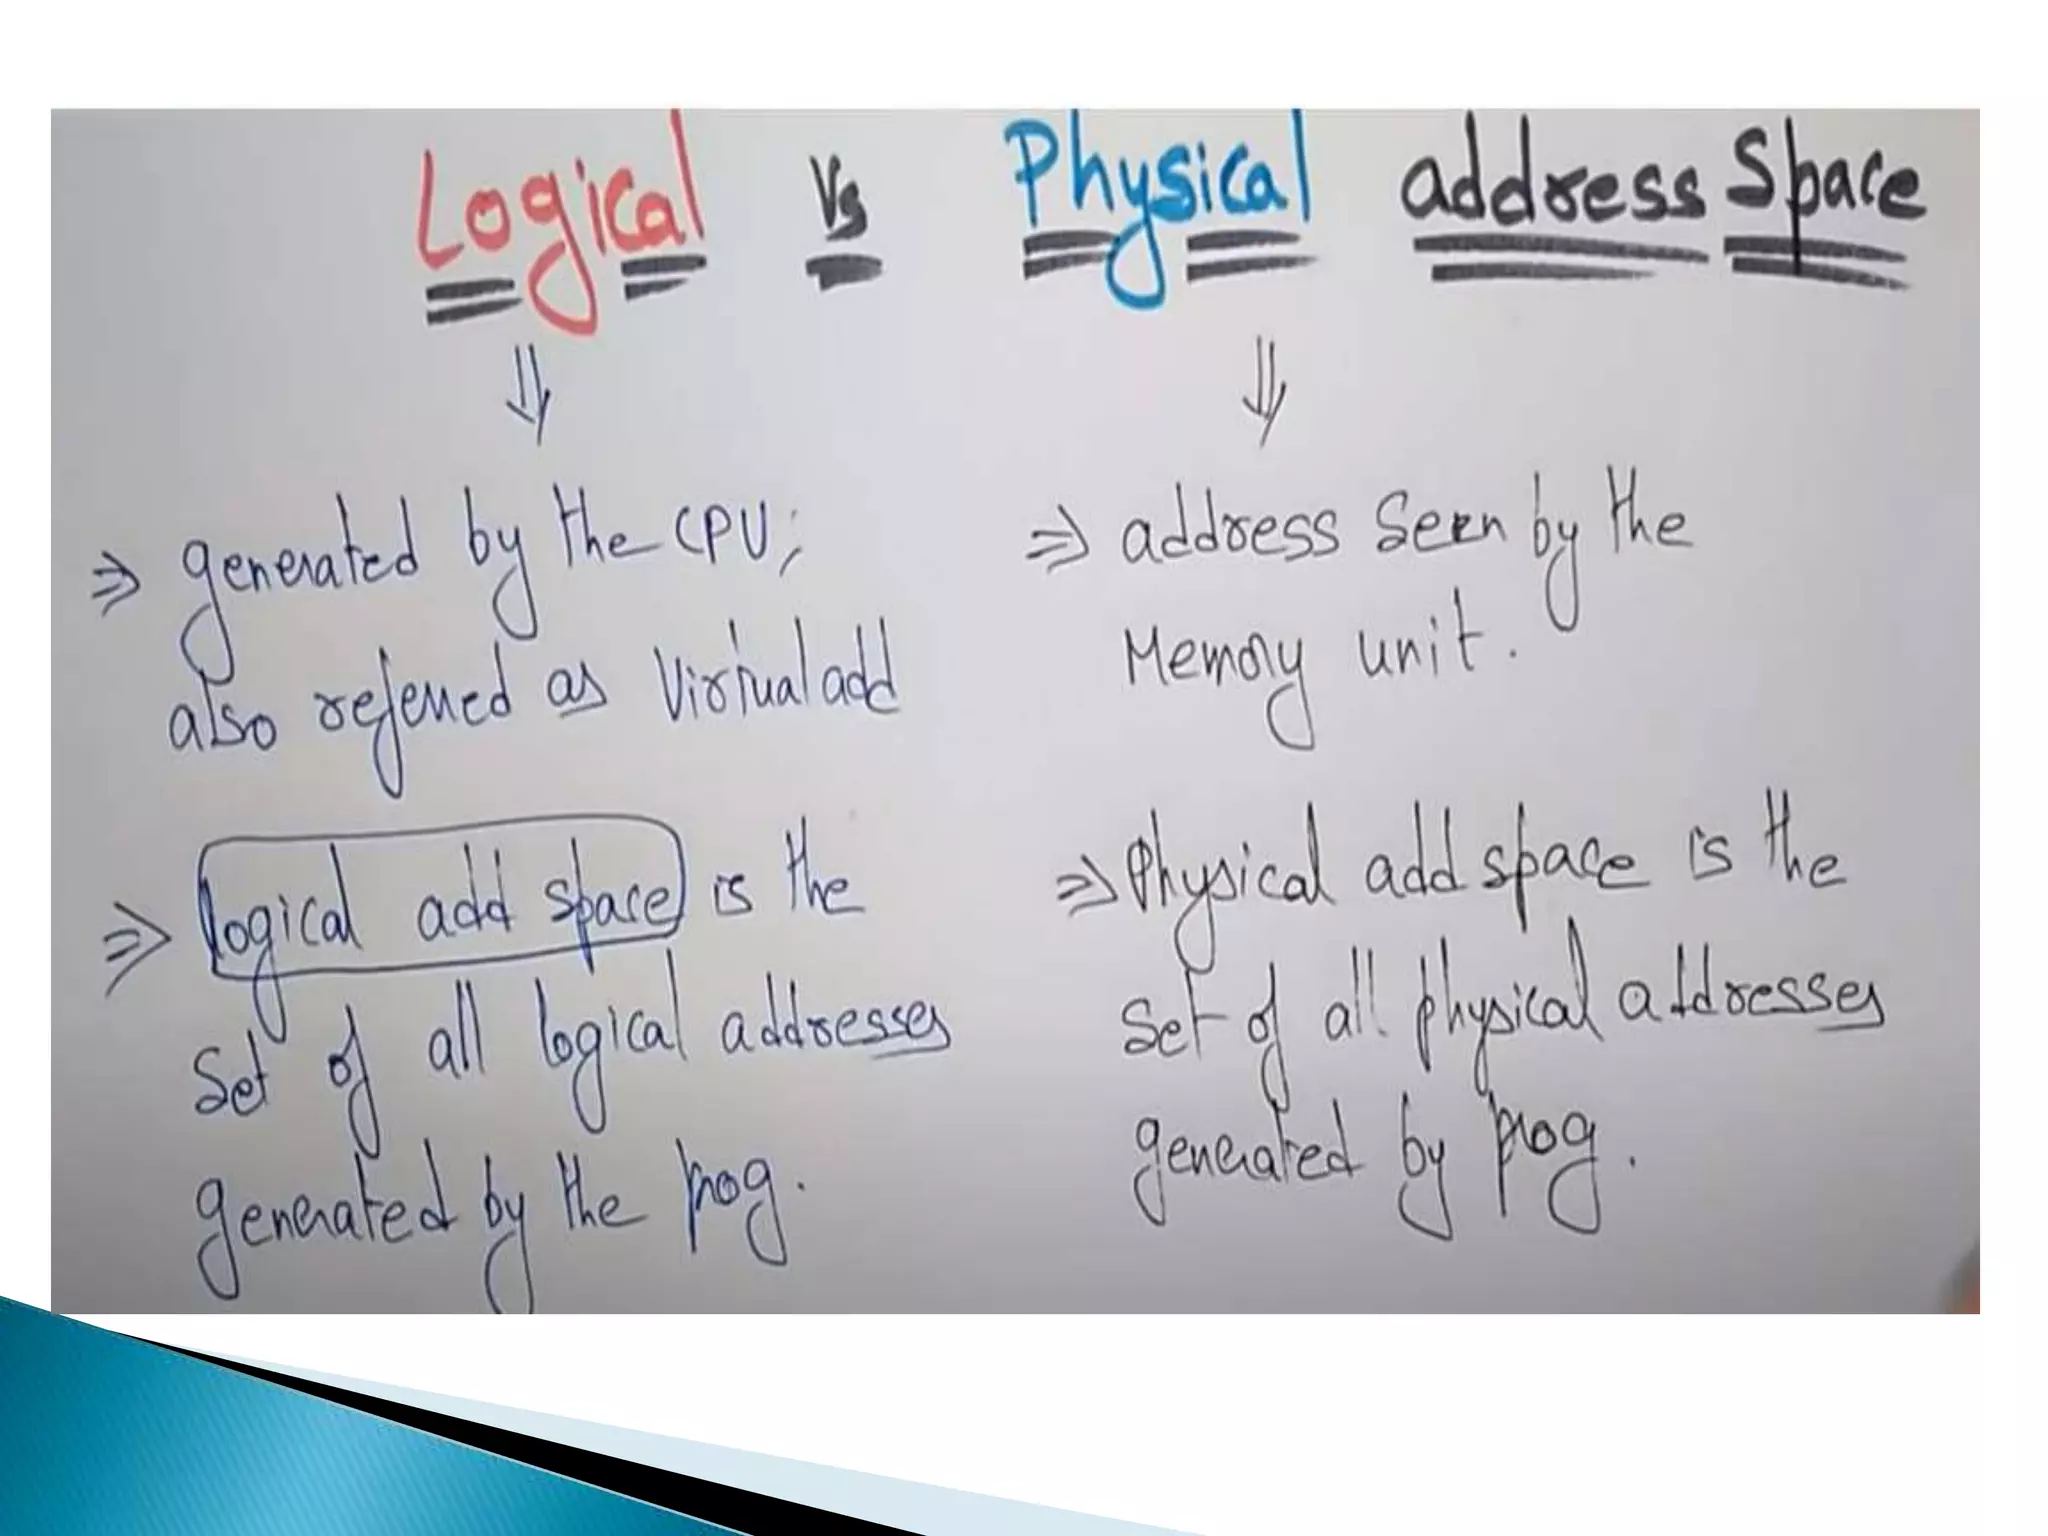 Logical Vs Physical address Space
⇒ generated by the CPU;
also referred as Virtual add
⇒ logical add space is the
set of all logical addresses
generated by the prog.
⇒ address seen by the
Memory unit.
⇒ Physical add space is the
set of all physical addresses
generated by prog.